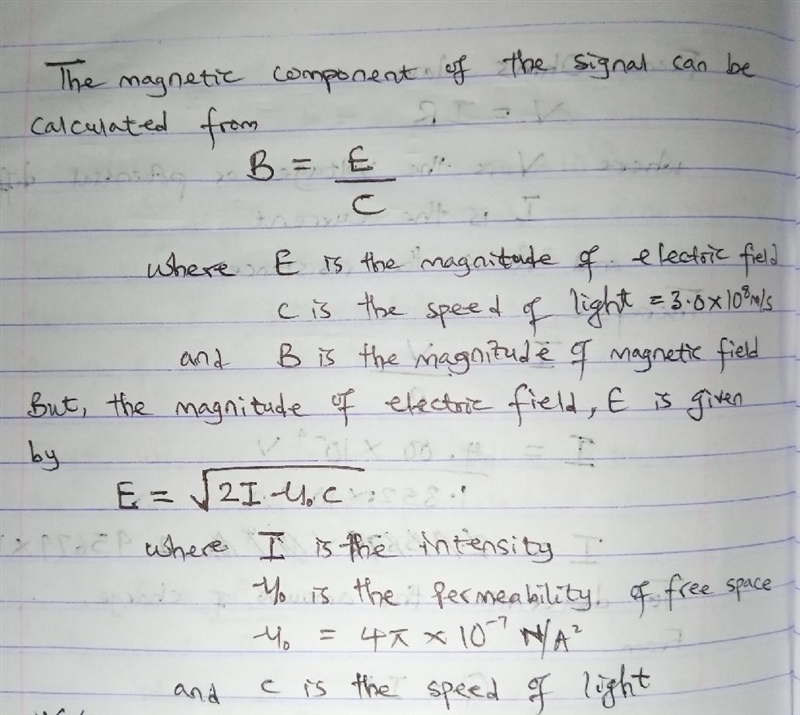 The magnetic component of the signal can be
calculated from
B = E/C
where E is the magnitude of electric field
C is the speed of light = 3.0 × 10⁸ m/s
and B is the magnitude of magnetic field
But, the magnitude of electric field, E is given
by
E = √2I μ₀ C
where I is the intensity
μ₀ is the permeability of free space
μ₀ = 4π × 10⁻⁷ N/A²
and C is the speed of light